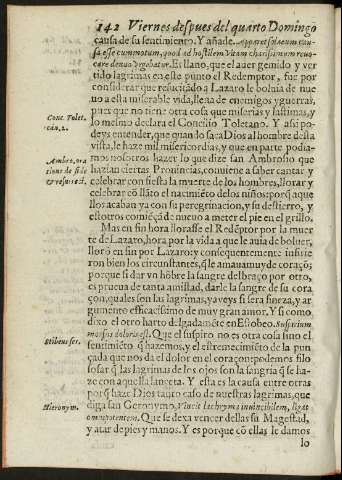 142 Viernes despues del quarto Domingo
causa de su sentimiento. Y añade. Apparet solaeum cau-
sa esse cummotum, quod ad hostilem vitam charissimum reuo-
care denuo Es llano, que el auer gemido y ver
tido lagrimas en este punto el Redemptor, fue por
considerar que resucitãdo a Lazaro le boluia de nue
uo a esta miserable vida, llena de enemigos y guerras,
pues que no tiene otra cosa que miserias y lastimas, y
Conc. Tolet.
can. 2.
lo mesmo declara el Concilio Toletano. Y assi po-
deys entender, que quando saca Dios al hombre desta
vista, le haze mil misericordias, y que en parte podia-
Ambro. ora
tione de fide
& resurrect.
mos nosotros hazer lo que dize san Ambrosio que
hazian ciertas Prouincias, conuiene a saber cantar y
celebrar con fiesta la muerte de los hombres, llorar y
celebrar cõ llãto el nacimiẽto de los niños: porq̃ aqui
llos acaban ya con su peregrinacion, y su destierro, y
estotros comiẽçã de nueuo a meter el pie en el grillo.
Mas en fin hora llorasse el Redẽptor por la muer
te de Lazaro, hora por la vida a que le auia de boluer,
lloró en fin por Lazaro: y consequentemente infirie
ron bien los circunstantes, q̃ le amaua muy de coraçõ;
porque si dar vn hõbre la sangre del braço por otro,
es prueua de tanta amistad, darle la sangre de su cora
çon, quales son las lagrimas, ya veys si sera fineza, y ar
gumento efficacissimo de muy gran amor. Y si como
dixo el otro harto delgadamẽte en Estobeo. Suspirium
Stibeus ser.
morsus doloris est. Que el suspiro no es otra cosa sino el
sentimiẽto q̃ hazemos, y el estremecimiẽto de la pun
çada que nos da el dolor en el coraçon: podemos filo
sofar q̃ las lagrimas de los ojos son la sangria q̃ se ha-
ze con aquella lanceta. Y esta es la causa entre otras
porq̃ haze Dios tauto caso de nuestras lagrimas, que
Hieronym.
diga san Geronymo. Vincit lachryma inuincibilem, ligat
omnipotentem. Que se dexa vencer dellas su Magestad,
y atar de pies y manos. Y es porque cõ ellas le damos
lo